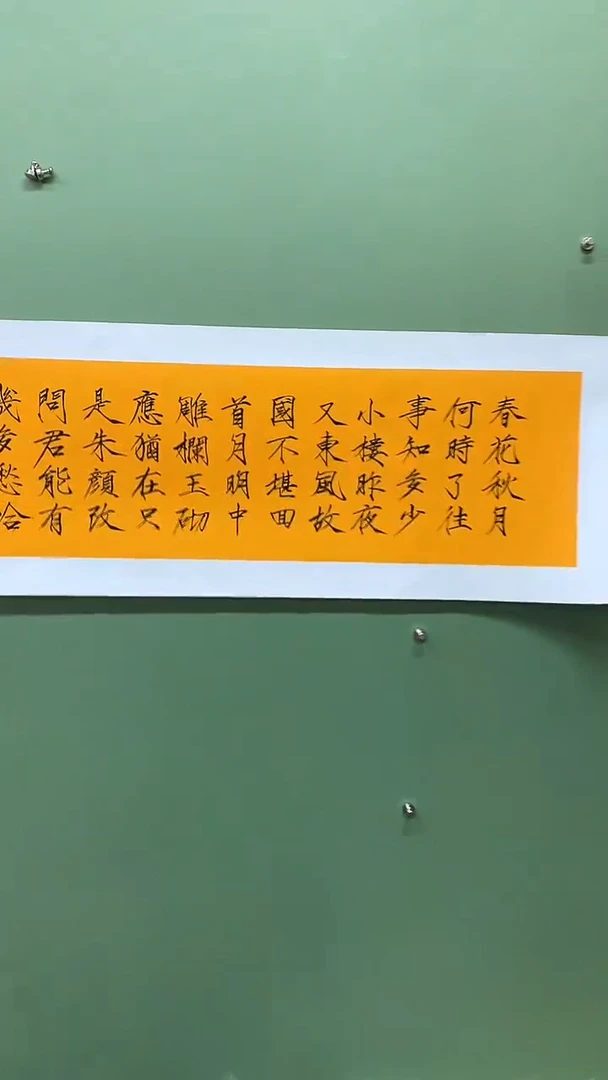 春花秋月
何時了往
事知多少
小樓昨夜
又東風故
國不堪回
首月明中
雕欄玉砌
應猶在只
是朱顏改
問君能有
幾多愁恰